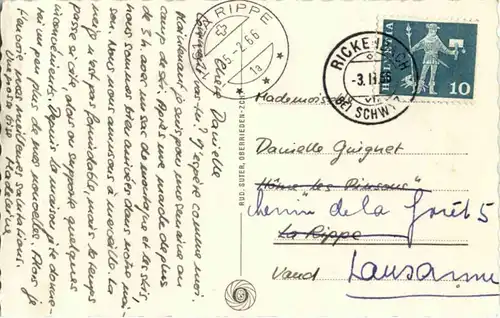 LA RIPPE
05.-2.66
1a
RICKENBACH
-3.II.66
BEI SCHWYZ
HELVETIA
10
Chère Danielle
Comment vas-tu? J'espère comme moi.
Maintenant je suis pour une semaine au
camp de ski. Après une marche de plus
de 3 h. avec un sac de montagne et les skis,
nous sommes bien arrivées dans notre mai-
son. Nous nous amusons à merveille. La
neige n'est pas formidable, mais le temps
passe si vite, alors on supporte quelques
inconvénients. Depuis la maison je te donne-
rai un peu plus de mes nouvelles. Alors je
t'envoie mes meilleures salutations.
Madeleine
RUD. SUTER, OBERRIEDEN-ZCH
Mademoiselle
Danielle Guignet
Home "les Pinsons"
chemin de la Forêt 5
La Rippe
Vaud Lausanne